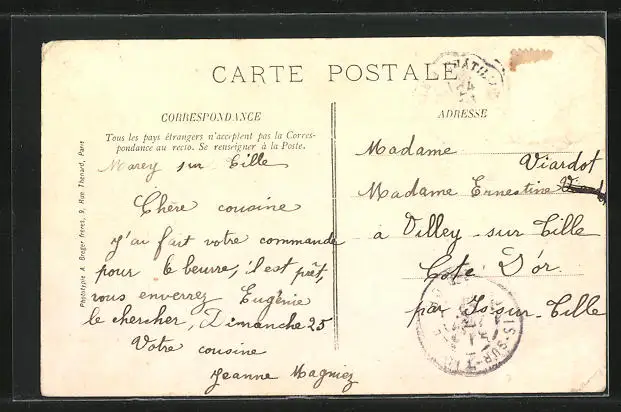 CARTE POSTALE
CORRESPONDANCE
Tous les pays étrangers n'acceptent pas la Corres-
pondance au recto. Se renseigner à la Poste.
Marey sur Tille
Chère cousine
J'ai fait votre commande
pour le beurre, il est prêt,
vous enverrez Eugénie
le chercher, Dimanche 25
Votre cousine
Jeanne Magniez
ADRESSE
Madame
Viardot
Madame Ernestine
à Villey sur Tille
Cote D'or
par Is sur Tille
Phototypie A. Breger frères, 9, Rue Thénard, Paris
24
S-SUR-T